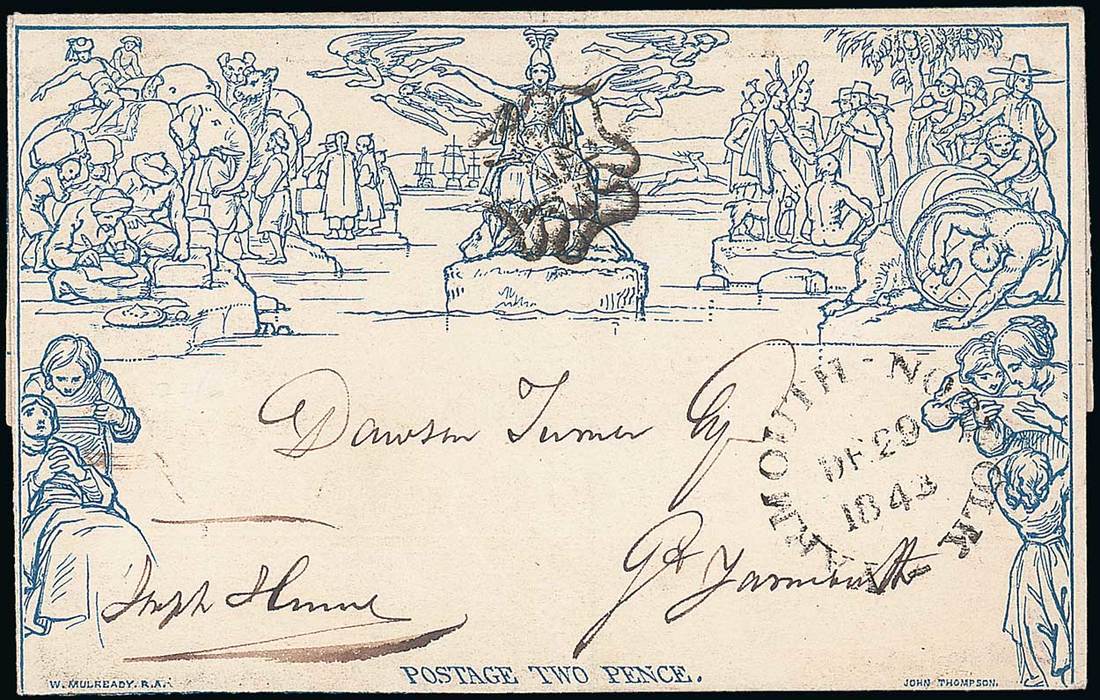 Dawson Turner Esq
YARMOUTH - NORFOLK
DE 29
1843
Gt Yarmouth
Joseph Hume
POSTAGE TWO PENCE.
W. MULREADY. R.A.
JOHN THOMPSON.